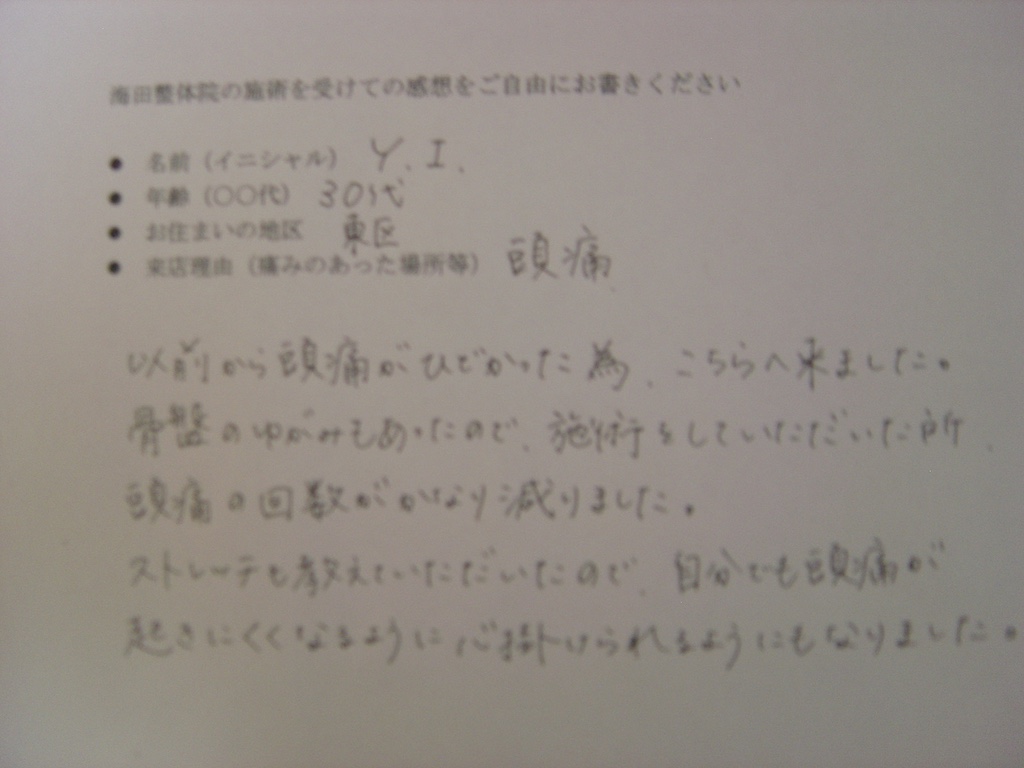 海田整体院の施術を受けての感想をご自由にお書きください
● 名前（イニシャル） Y.I.
● 年齢（○○代） 30代
● お住まいの地区 東区
● 来店理由（痛みのあった場所等） 頭痛
以前から頭痛がひどかった為、こちらへ来ました。
骨盤のゆがみもあったので、施術をしていただいた所、
頭痛の回数がかなり減りました。
ストレッチも教えていただいたので、自分でも頭痛が
起きにくくなるように心掛けられるようにもなりました。